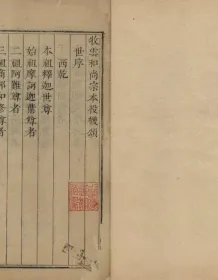 牧雲和尚宗本投機頌
世序
西乾
本祖釋迦世尊
始祖摩訶迦葉尊者
二祖阿難尊者
三祖商那和修尊者